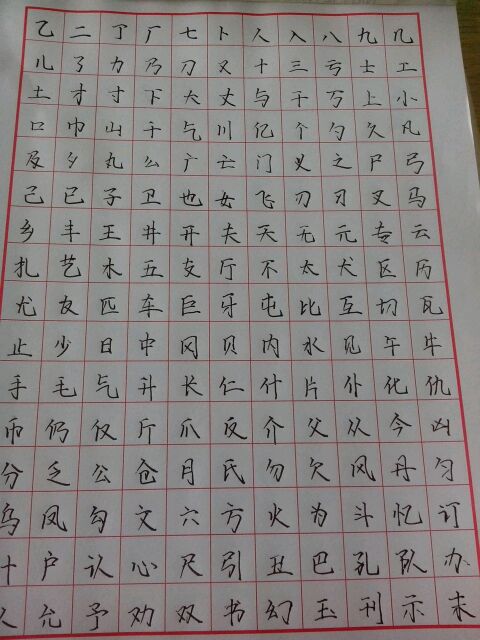 乙二丁厂七卜人入八九几
儿了力乃刀又十三亏士工
土才寸下大丈与千万上小
口巾山千乞川亿个勺久凡
及夕丸么广亡门义之尸弓
己已子卫也女飞刃习叉马
乡丰王井开夫天无元专云
扎艺木五支厅不太犬区历
尤友匹车巨牙屯比互切瓦
止少日中冈贝内水见午牛
手毛气升长仁什片仆化仇
币仍仅斤爪反介父从今凶
分乏公仓月氏勿欠风丹匀
乌凤勾文六方火为斗忆订
户认心尺引丑巴孔队办
允予劝双书幻玉刊示末